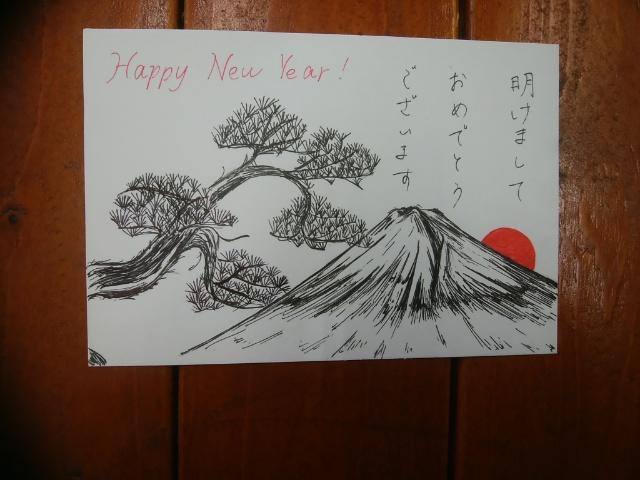 Happy New Year!
明けまして
おめでとう
ございます